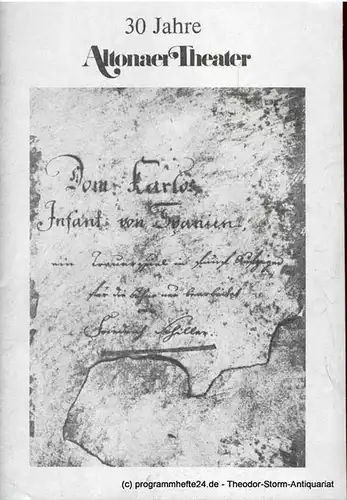 30 Jahre
Altonaer Theater
Dom Karlos
Infant von Spanien,
ein Trauerspiel in fünf Aufzügen
für die Bühne neu bearbeitet
Friedrich Schiller.
(c) programmhefte24.de - Theodor-Storm-Antiquariat